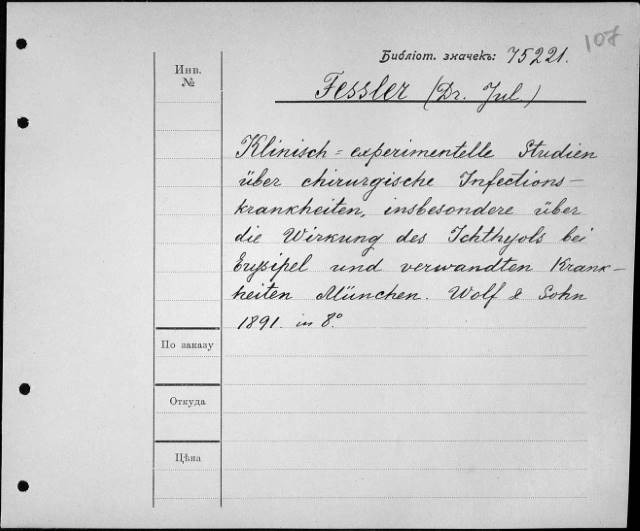 107
Библіот. значекъ: 75221.
Инв.
№
Fessler (Dr. Jul.)
Klinisch=experimentelle Studien
über chirurgische Infections-
krankheiten, insbesondere über
die Wirkung des Ichthyols bei
Erysipel und verwandten Krank-
heiten München. Wolf & Sohn
1891. in 8°.
По заказу
Откуда
Цѣна